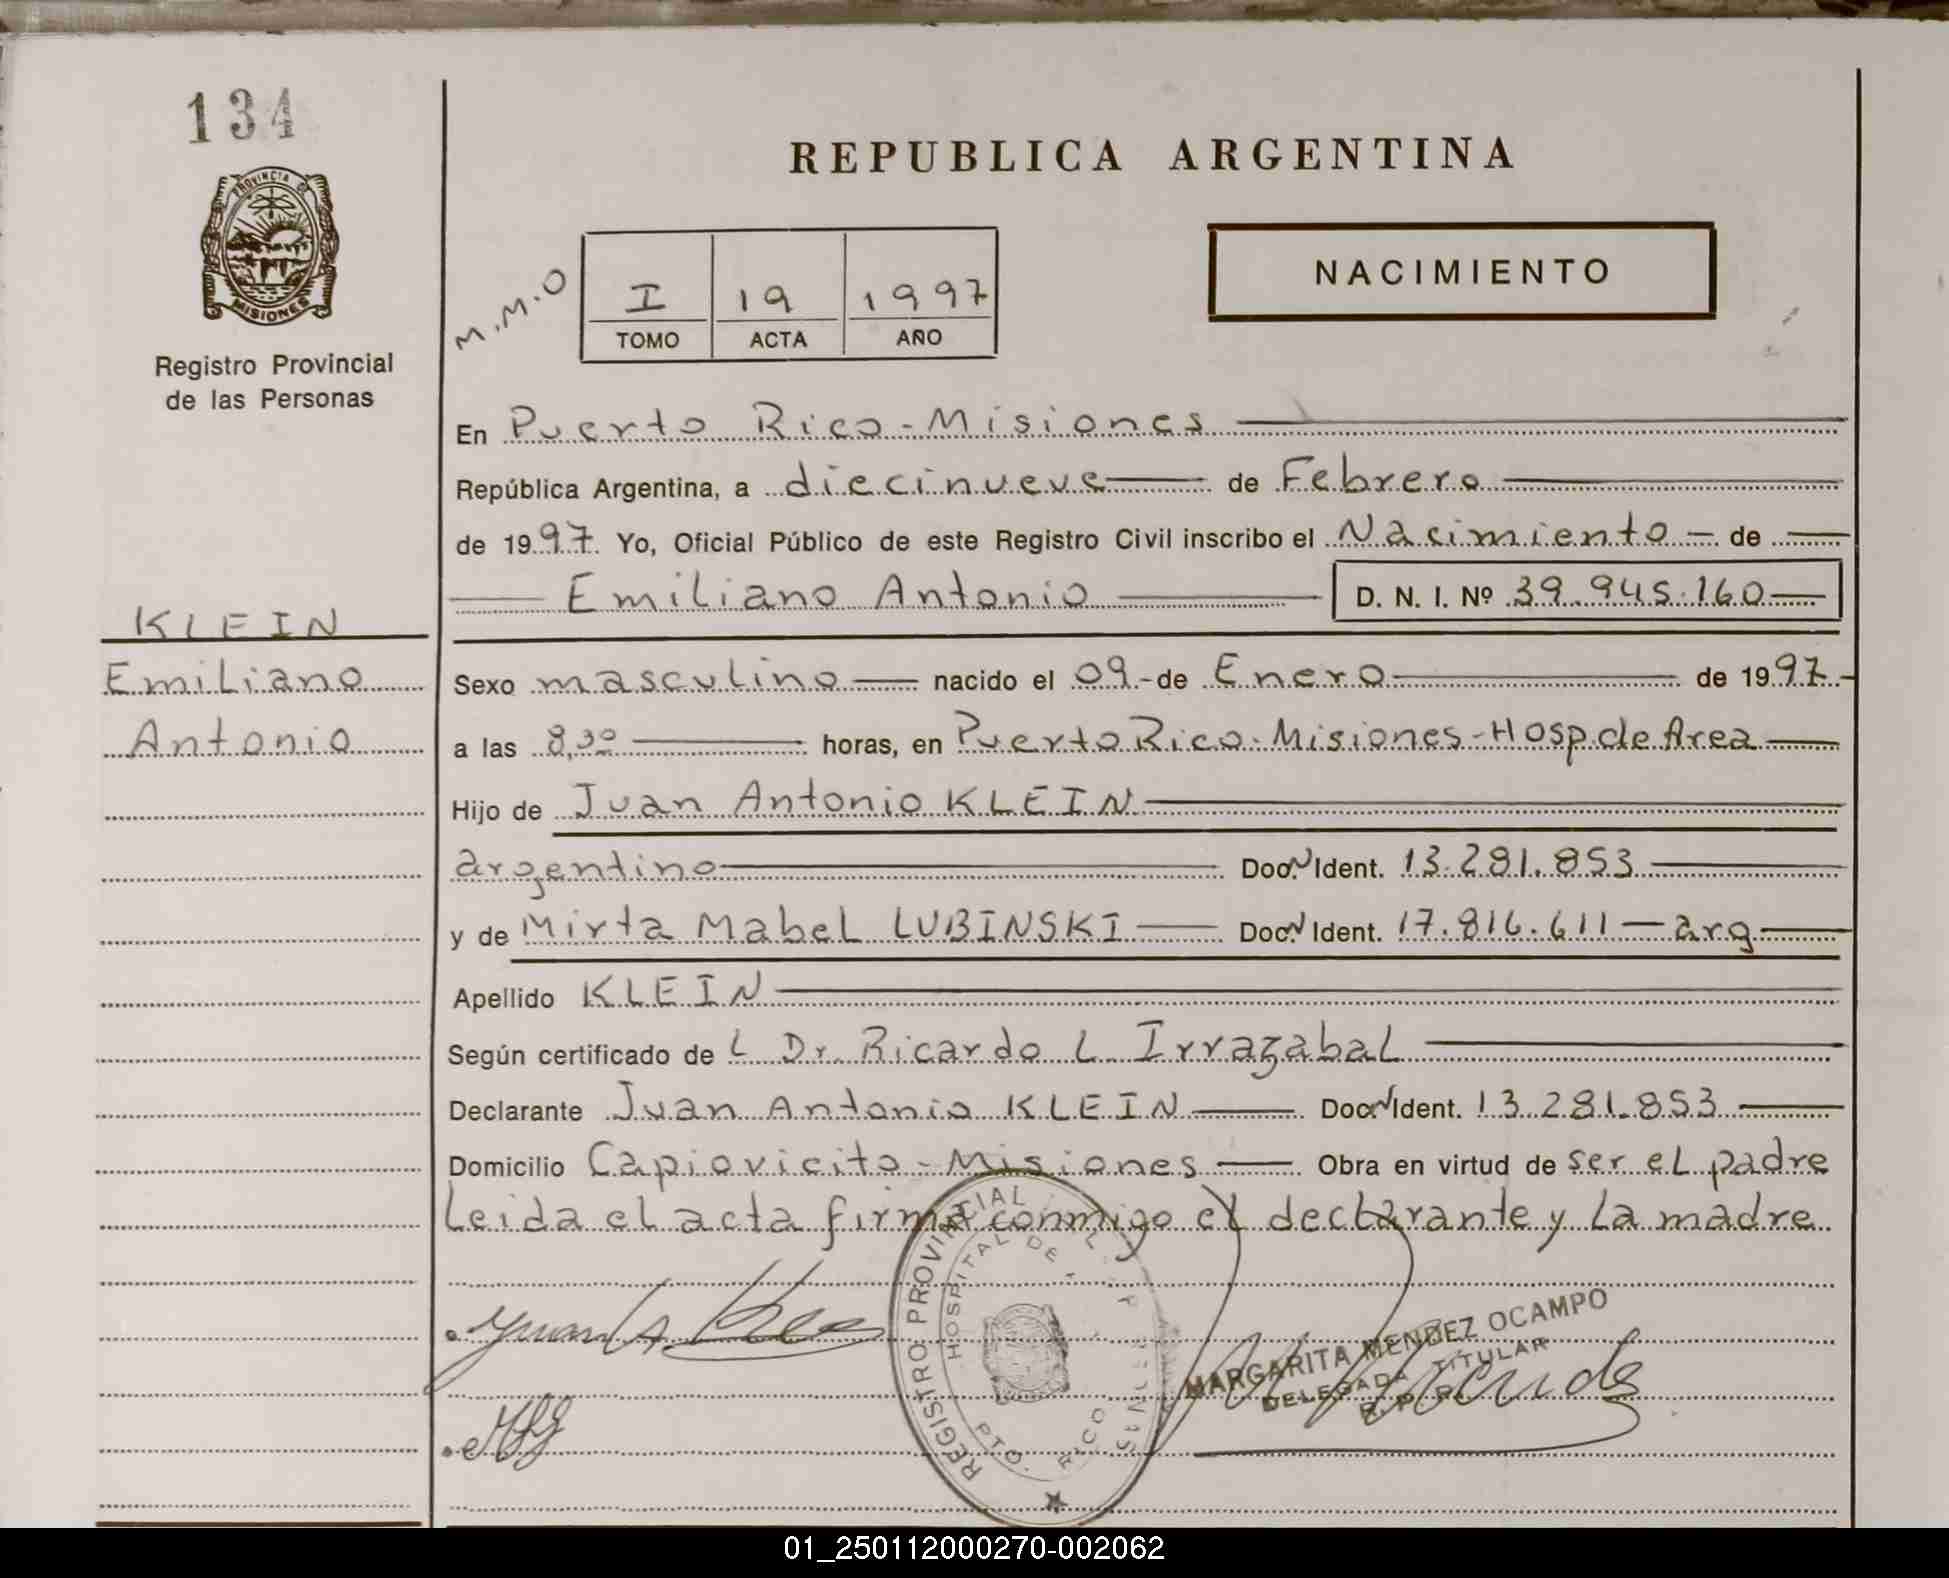 134
REPUBLICA ARGENTINA
PROVINCIA DE
MISIONES
Registro Provincial
de las Personas
M.M.O
I 19 1997
TOMO ACTA AÑO
NACIMIENTO
En Puerto Rico - Misiones
República Argentina, a diecinueve de Febrero
de 1997. Yo, Oficial Público de este Registro Civil inscribo el Nacimiento - de
Emiliano Antonio D. N. I. Nº 39.945.160
KLEIN
Emiliano
Antonio
Sexo masculino nacido el 09 - de Enero de 1997
a las 8,30 horas, en Puerto Rico - Misiones - Hosp. de Area
Hijo de Juan Antonio KLEIN
argentino Doc. N Ident. 13.281.853
y de Mirta Mabel LUBINSKI Doc. N Ident. 17.816.611 - arg
Apellido KLEIN
Según certificado de L Dr. Ricardo L. Irrazabal
Declarante Juan Antonio KLEIN Doc. N Ident. 13.281.853
Domicilio Capiovicito - Misiones Obra en virtud de ser el padre
Leida el acta firma conmigo el declarante y la madre
REGISTRO PROVINCIAL
HOSPITAL DE
PTO. RICO
MARGARITA MENDEZ OCAMPO
DELEGADA TITULAR
R. P. P.
01_250112000270-002062